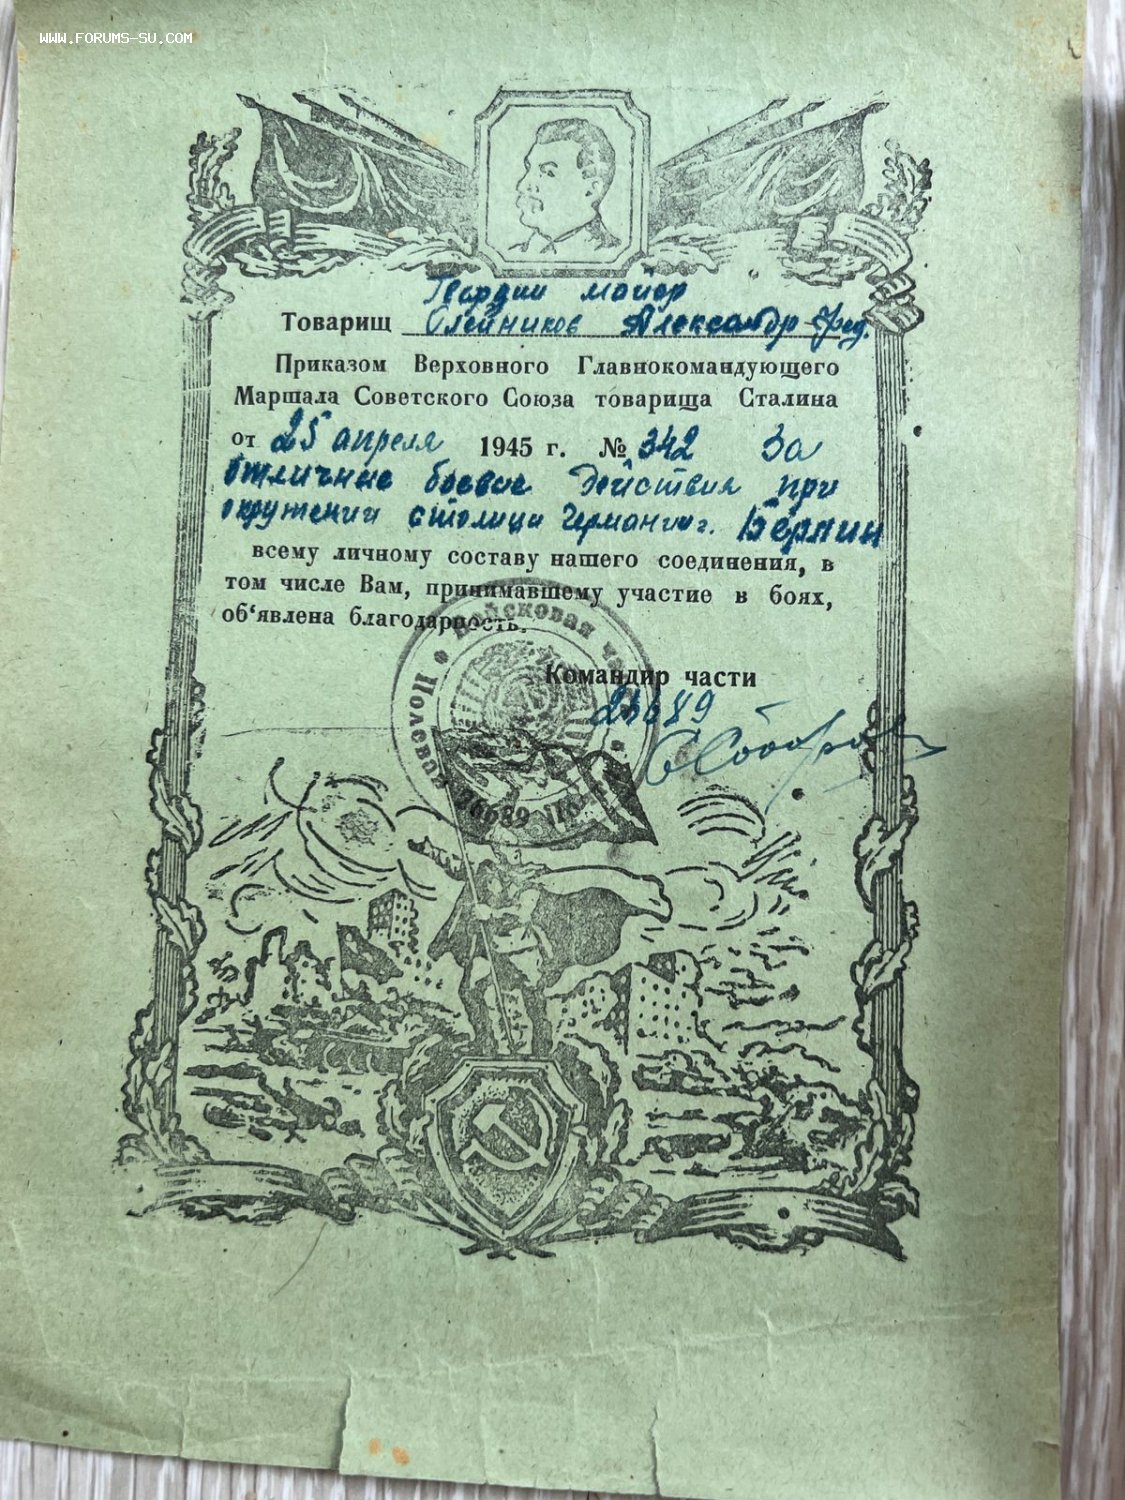 WWW.FORUMS-SU.COM
Гвардии майор
Товарищ Олейников Александр Фед.
Приказом Верховного Главнокомандующего
Маршала Советского Союза товарища Сталина
от 25 апреля 1945 г. № 342 За
отличные боевые действия при
окружении столици Германии г. Берлин
всему личному составу нашего соединения, в
том числе Вам, принимавшему участие в боях,
об‘явлена благодарность.
Командир части
Войсковая часть
Полевая почта